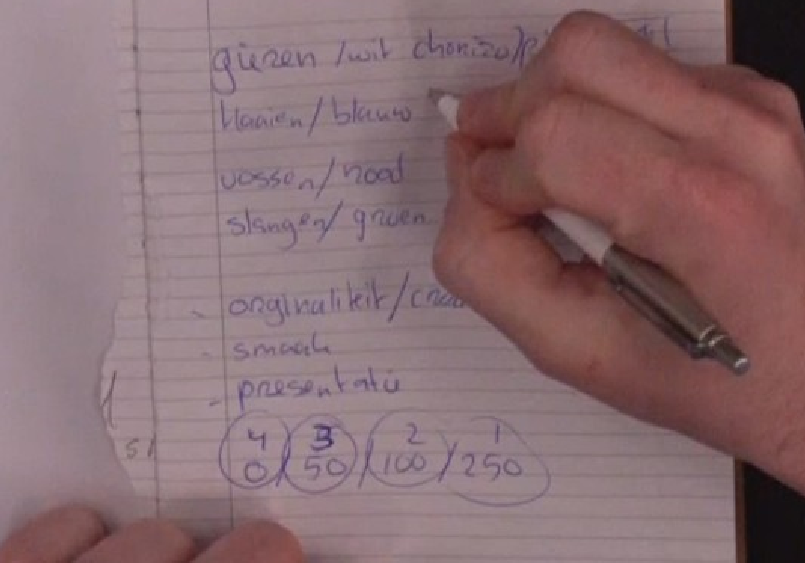 gieren / wit chorizo/
Haaien / blauw
vossen / rood
slangen / groen
- originaliteit /
- smaak
- presentatie
4 3 2 1
0 / 50 / 100 / 250
51